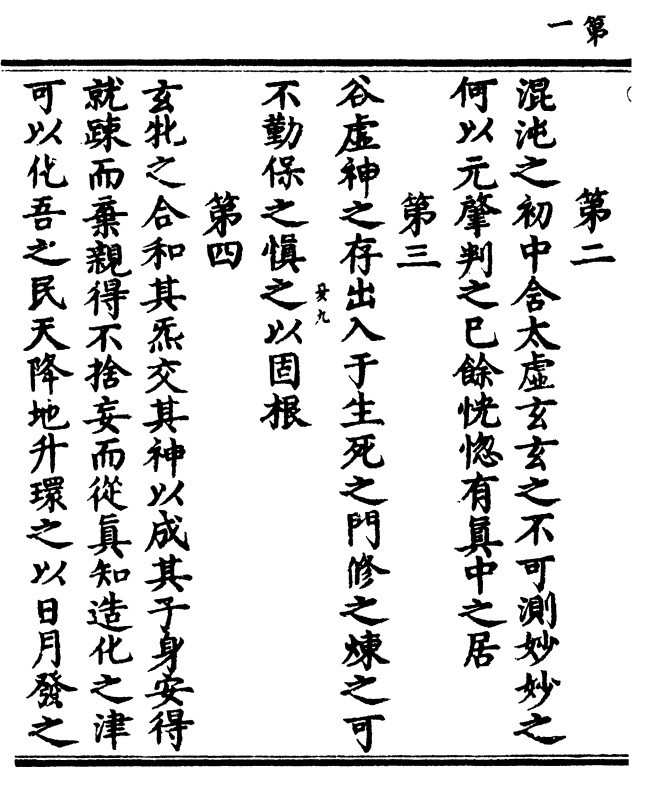 第一
第二
混沌之初中含太虛玄玄之不可測妙妙之
何以元肇判之已餘恍惚有眞中之居
第三
谷虛神之存出入于生死之門修之煉之可
不勤保之愼之以固根
第四
玄牝之合和其炁交其神以成其子身安得
就踈而棄親得不捨妄而從眞知造化之津
可以化吾之民天降地升環之以日月發之